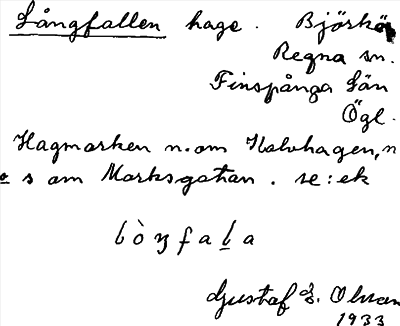 Långfallen hage. Björkö
Regna sn.
Finspånga Län
Ögl.
Hagmarken n. om Kalvhagen, n
o s om Marksgatan. se: ek
bòŋfaḷa
Gustaf E. Olsson
1933